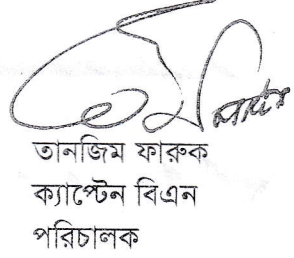 তানজিম ফারুক
ক্যাপ্টেন বিএন
পরিচালক